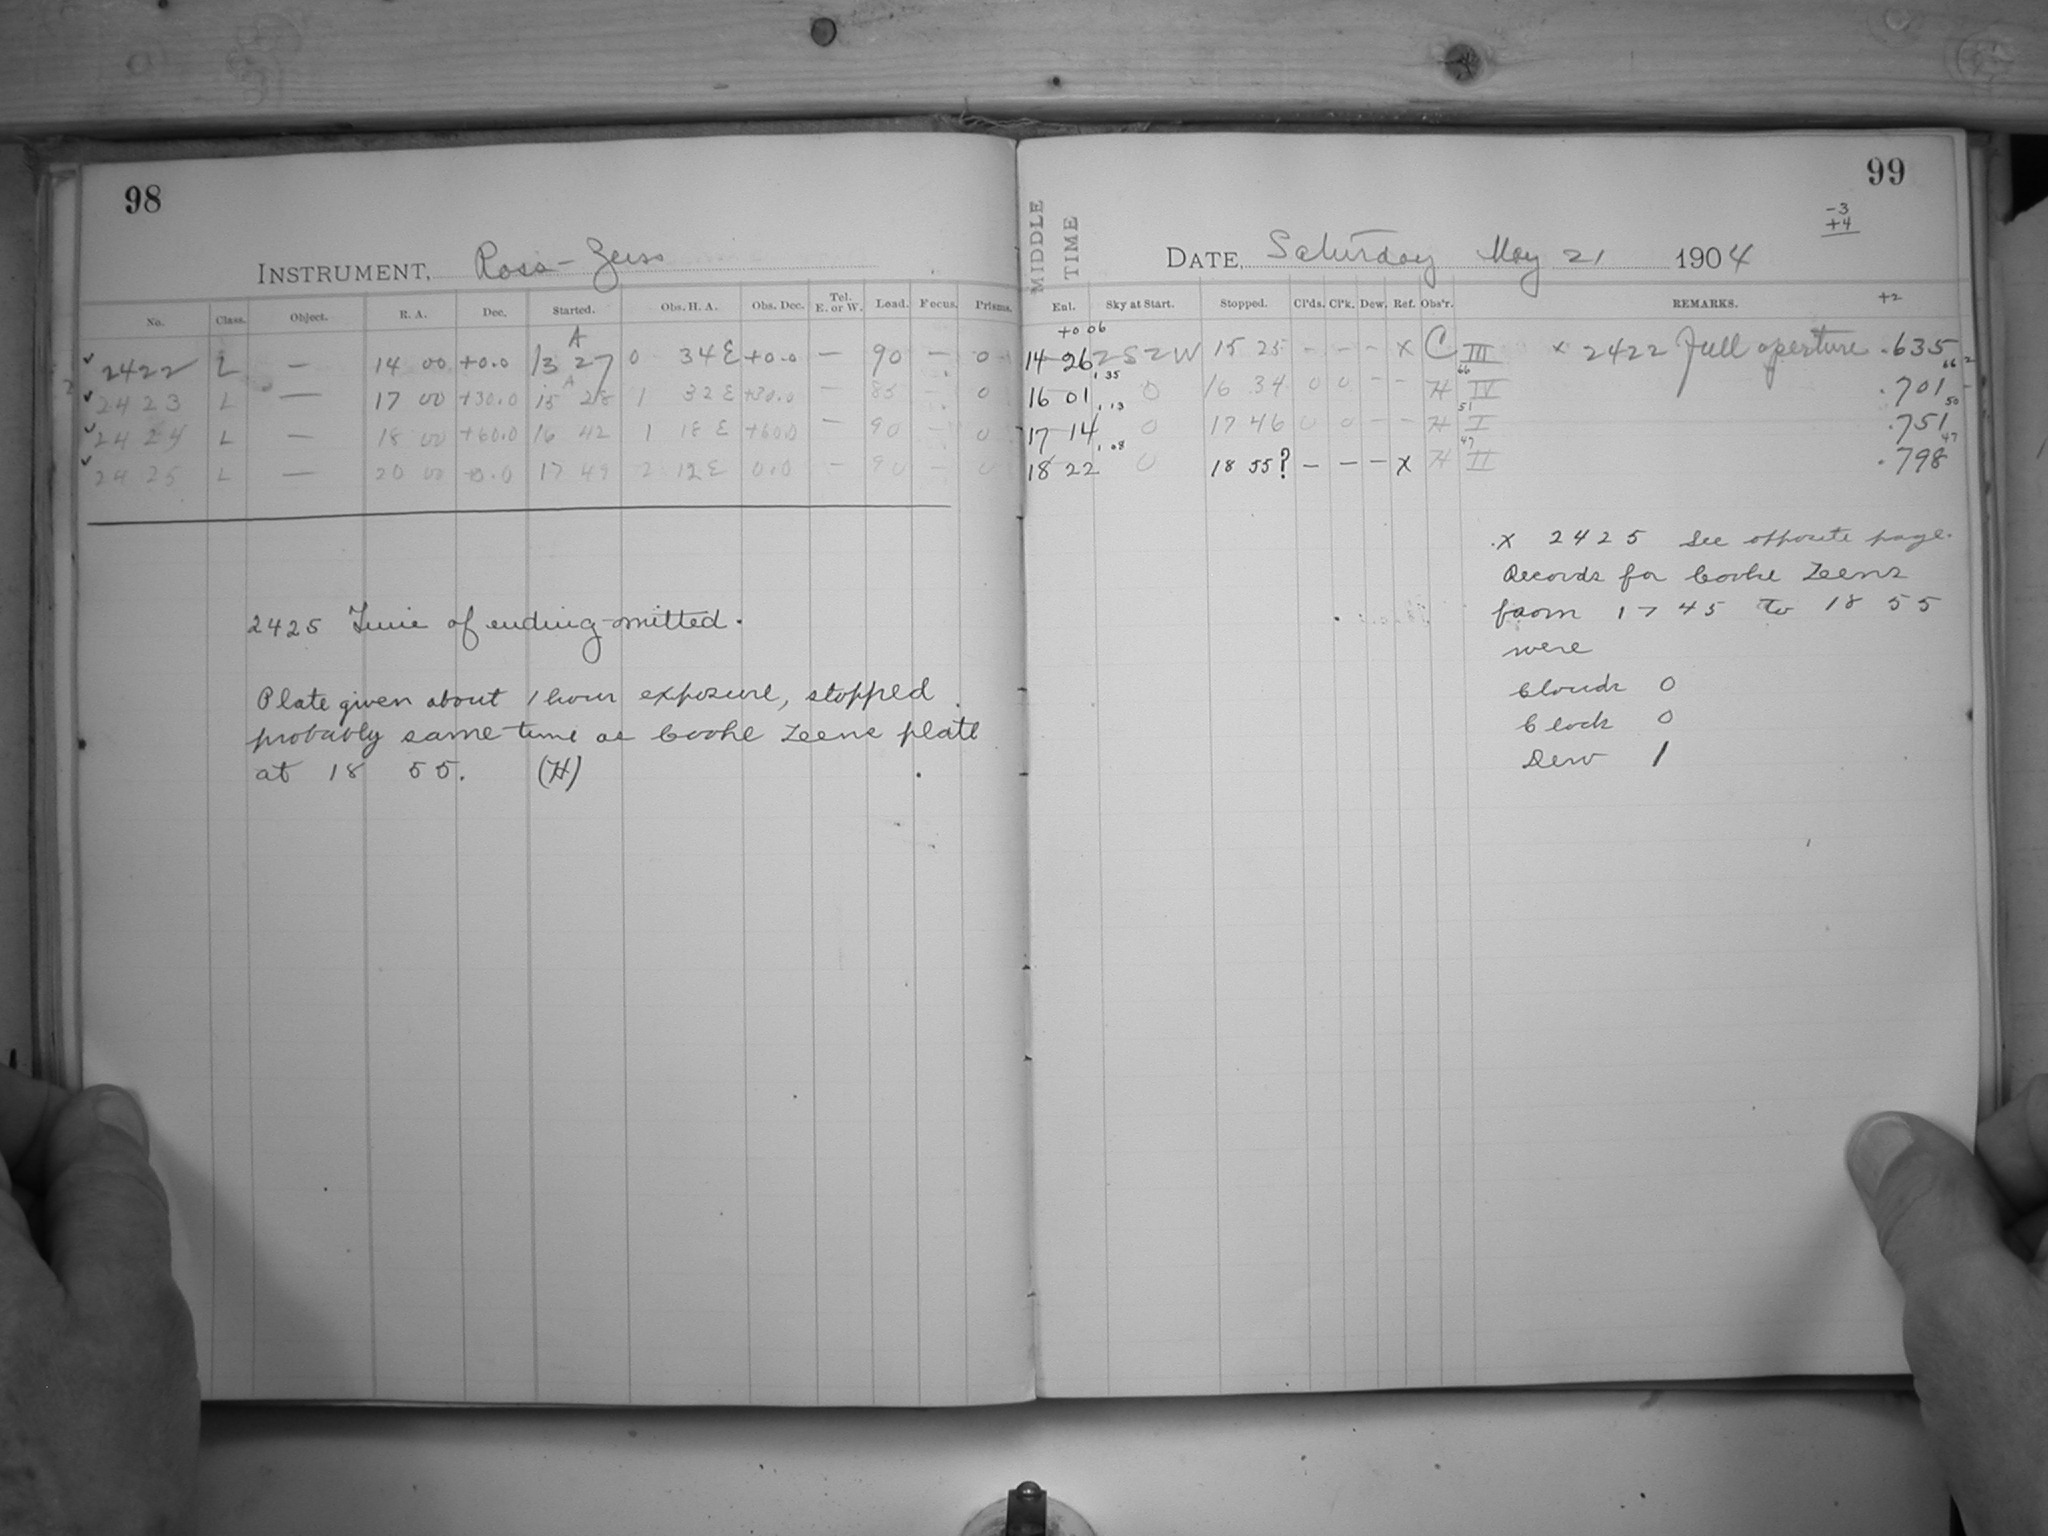 98
INSTRUMENT, Ross-Zeiss
No. Class. Object. R. A. Dec. Started. Obs. H. A. Obs. Dec. Tel. E. or W. Load. Focus. Prisms.
A
2422 L — 14 00 +0.0 13 27 0 34 E +0.0 — 90 — 0
A
2423 L — 17 00 +30.0 15 28 1 32 E +30.0 — 85 — 0
2424 L — 18 00 +60.0 16 42 1 18 E +60.0 — 90 — 0
2425 L — 20 00 +0.0 17 49 2 12 E 0.0 — 90 — 0
2425 Time of ending omitted.
Plate given about 1 hour exposure, stopped
probably same time as Cooke Lens plate
at 18 55. (H)
99
-3
+4
MIDDLE TIME
DATE, Saturday May 21 1904
Enl. Sky at Start. Stopped. Cl'ds. Cl'k. Dew. Ref. Obs'r. REMARKS. +2
+0 06
14 26 2 S 2 W 15 25 - - - x C III x 2422 Full aperture .635
1.35 66 66 2
16 01 0 16 34 0 0 - - H IV .701
1.13 51 50
17 14 0 17 46 0 0 - - H I .751
1.08 47 47
18 22 0 18 55? - - - x H II .798
x 2425 See opposite page.
Records for Cooke Lens
from 17 45 to 18 55
were
Clouds 0
Clock 0
Dew 1